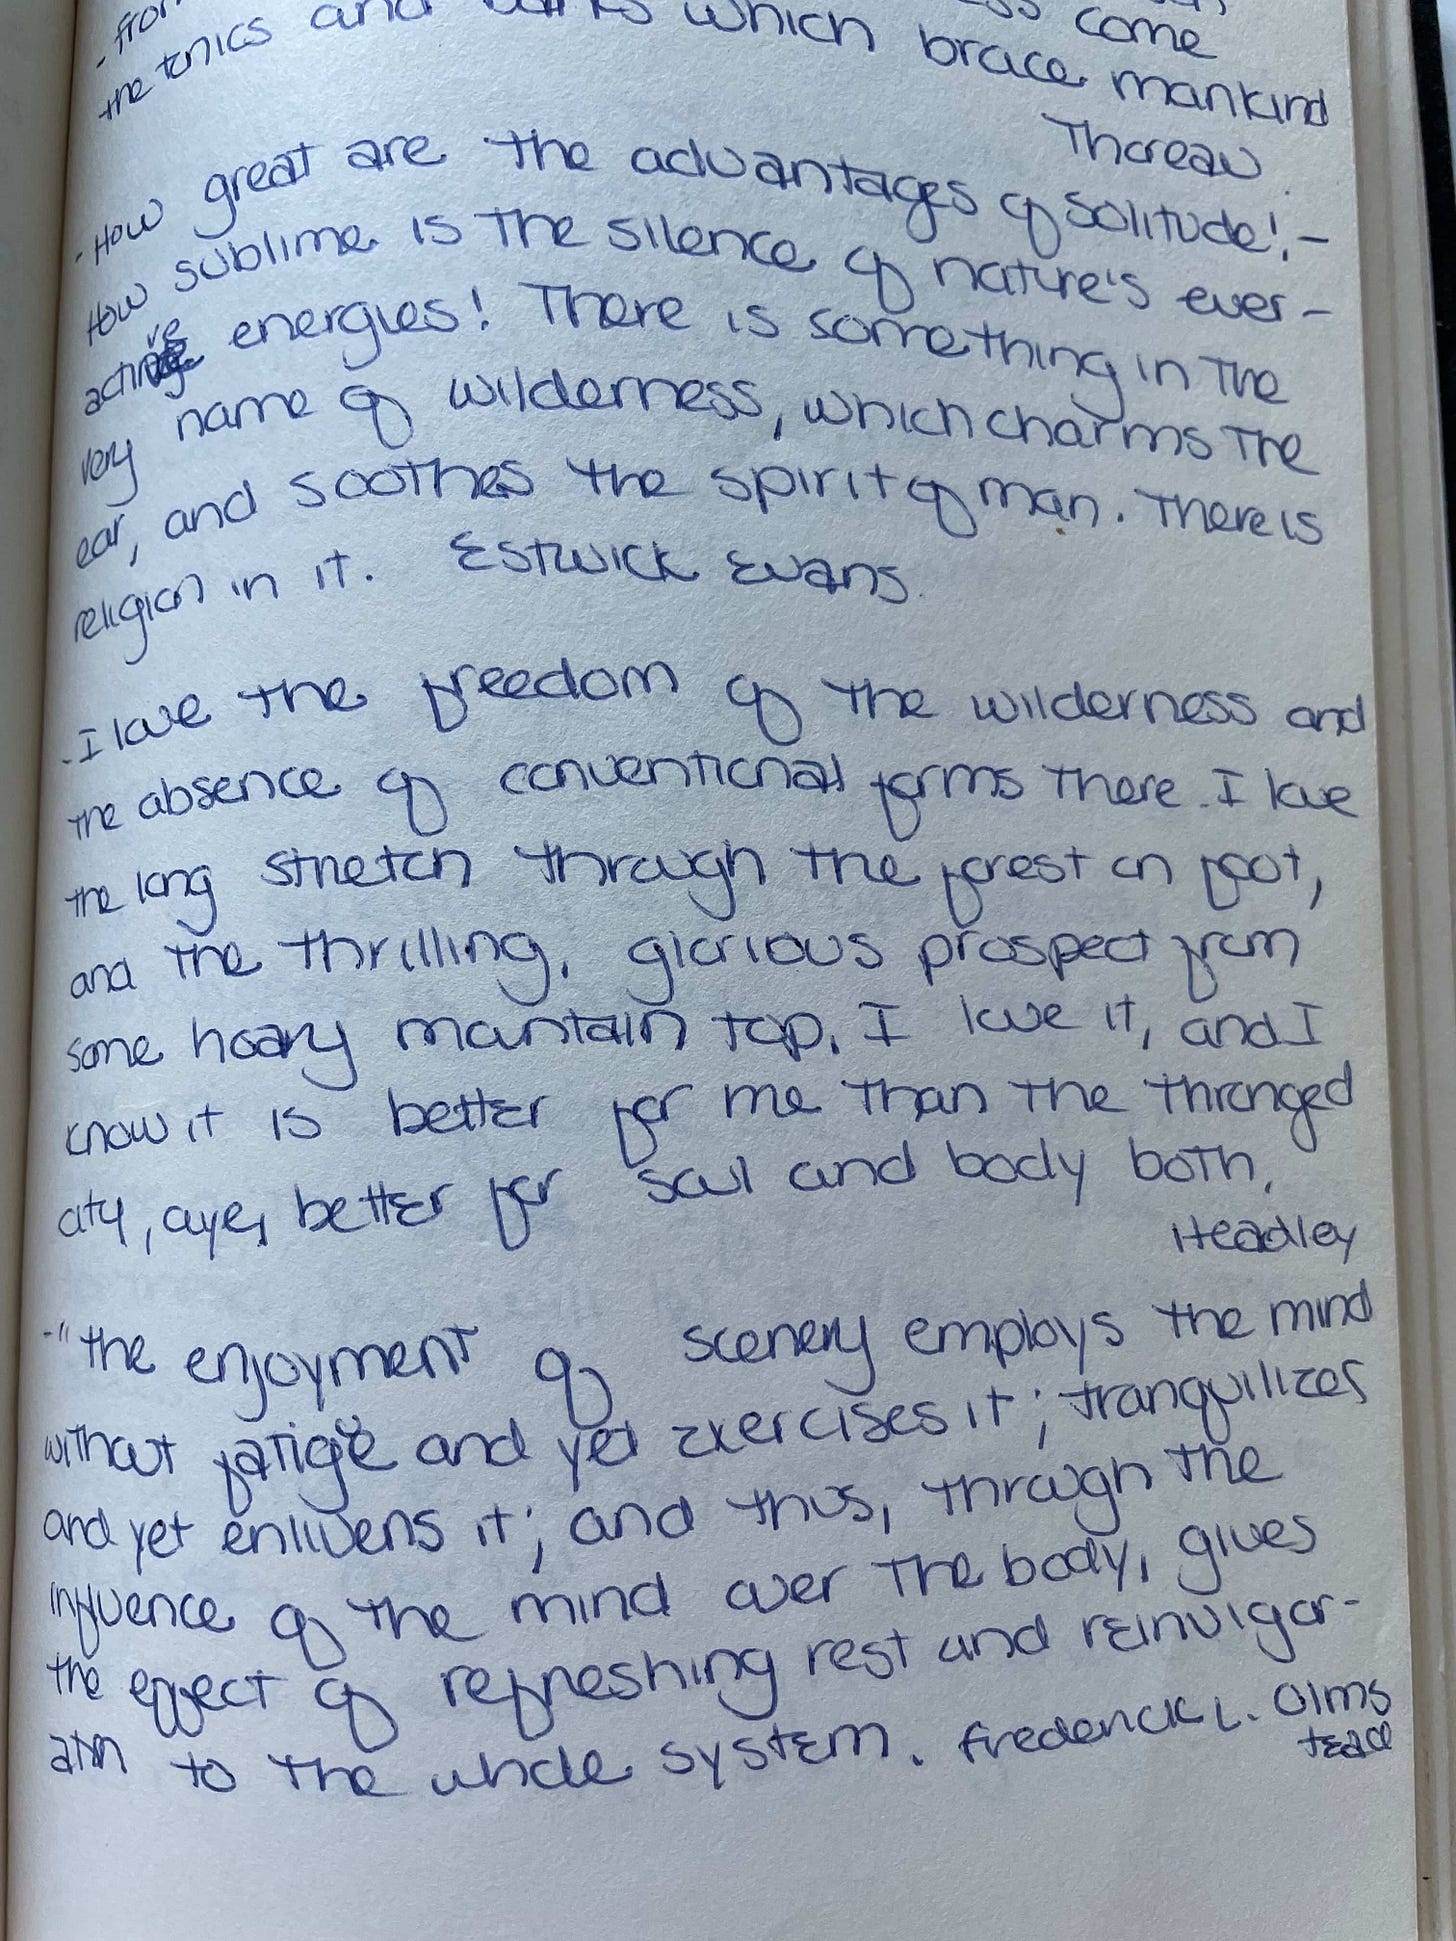 - from
come
the tonics and barks which brace mankind
Thoreau.
- How great are the advantages of solitude! -
How sublime is the silence of nature's ever-
active energies! There is something in the
very name of wilderness, which charms the
ear, and soothes the spirit of man. There is
religion in it. Estwick Evans.
- I love the freedom of the wilderness and
the absence of conventional forms there. I love
the long stretch through the forest on foot,
and the thrilling, glorious prospect from
some hoary mountain top. I love it, and I
know it is better for me than the thronged
city, aye, better for soul and body both.
Headley
- "the enjoyment of scenery employs the mind
without fatigue and yet exercises it; tranquilizes
and yet enlivens it; and thus, through the
influence of the mind over the body, gives
the effect of refreshing rest and reinvigor-
ation to the whole system. Frederick L. Olms
tead